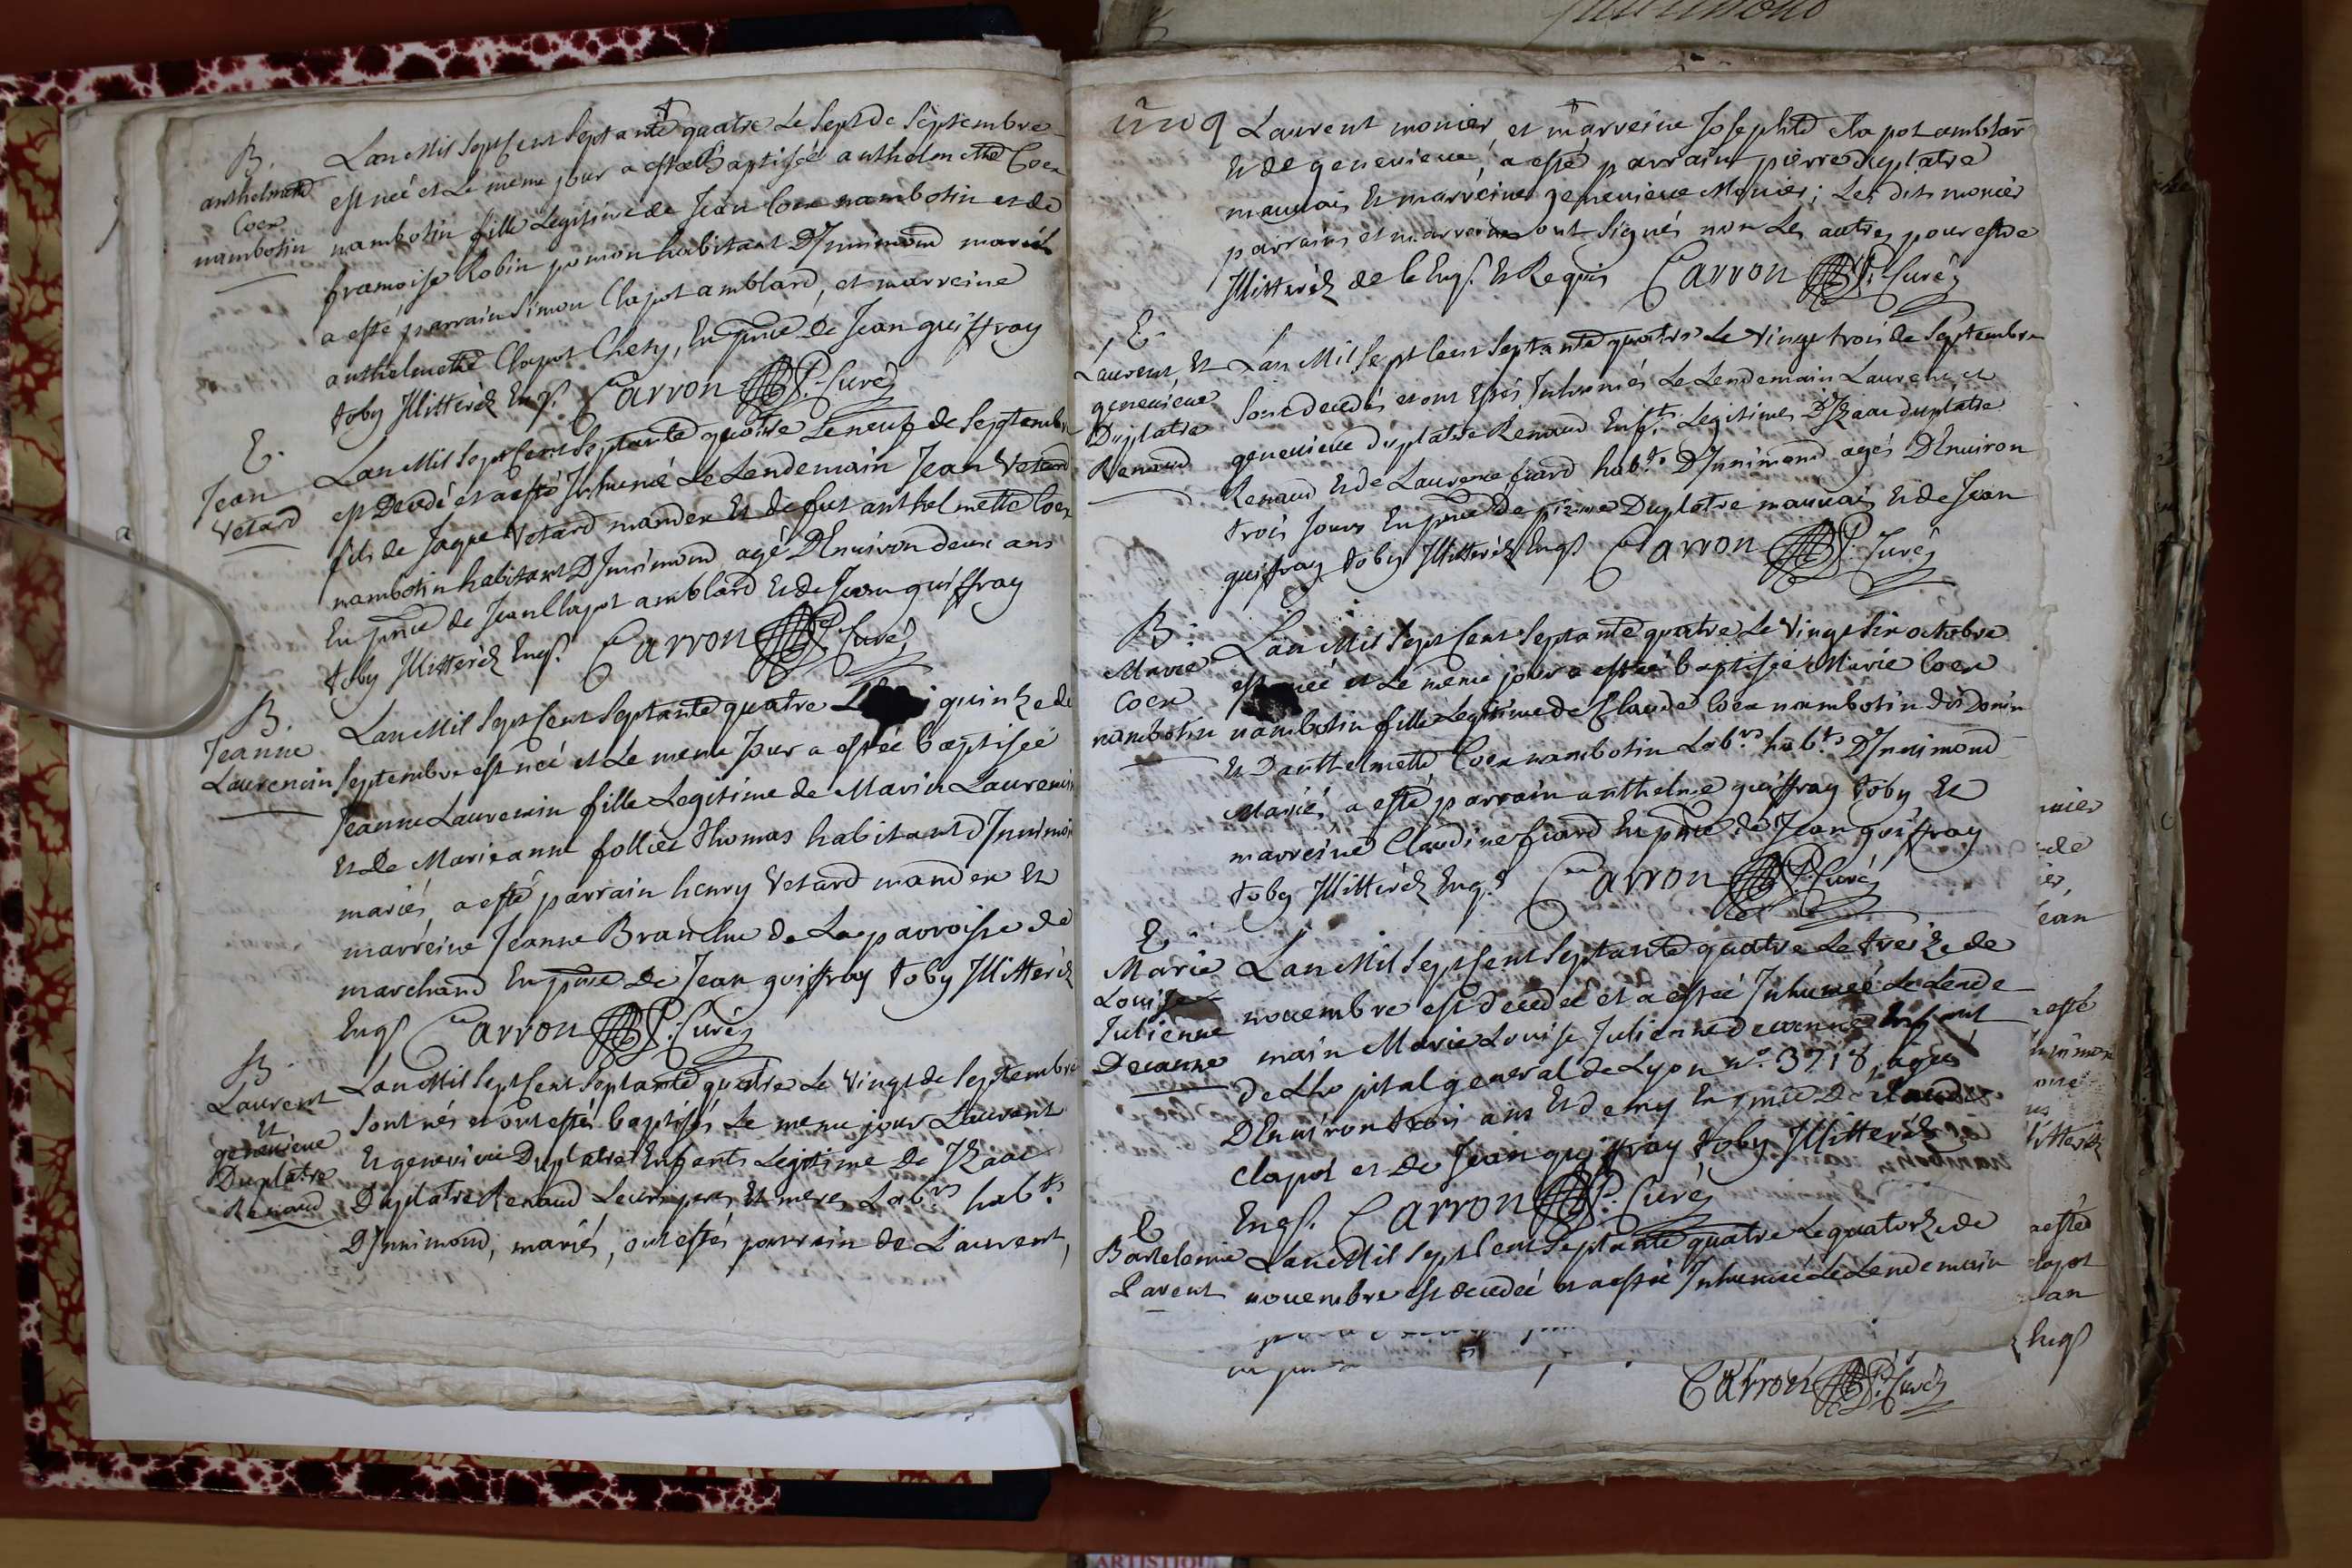 B.
anthelmette
Coex
nambotin
Lan Mil Sept Cent Septante quatre Le Sept de Septembre
est neé et Le meme jour a esteé Baptiseé anthelmette Coex
nambotin fille Legitime de Jean Coex nambotin et de
françoise Robin habitant D'Innimond mariés
a esté parrain Simon Clapot amblard, et marreine
anthelmette Clapot Chery, En pnce De Jean guiffray
toby Illitteréz Enqs. Carron P. Curé
E.
Jean
Vetard
Lan Mil Sept Cent Septante quatre Le neuf de Septembre
est Decedé et a esté Inhumé Le Lendemain Jean Vetard
fils de Jaque Vetard mander Et de fut anthelmette Coex
nambotin habitant D'Innimond agé D'Environ deux ans
En pnce de Jean Clapot amblard Et de Jean guiffray
toby Illitteréz Enqs. Carron P. Curé
B.
Jeanne
Laurencin
Lan Mil Sept Cent Septante quatre quinze de
Septembre est neé et Le meme Jour a esteé baptiseé
Jeanne Laurencin fille Legitime de Marin Laurencin
Et de Marieanne follier thomas habitant d'Innimon
mariés, a esté parrain henry Vetard mander Et
marreine Jeanne Branche de La parroisse de
marchand En pnce De Jean guiffray toby Illitteréz
Enqs Carron P. Curé
B.
Laurent
et
genevieve
Duplatre
Renaud
Lan Mil Sept Cent Septante quatre Le Vingt de Septembre
Sont nés et ont estés baptisés Le meme jour Laurent
Et genevieve Duplatre Enfants Legitime De Izaac
Duplatre Renaud Leurs peres Et meres Labrs habts
D'Innimond, mariés, ont estés parrein de Laurent,
Laurent monier et marreine Josephte Clapot amblar
Et de genevieve a esté parrain pierre duplatre
mauvais Et marreine genevieve Monier; Les dits monier
parrains et marreine ont Signés non Les autres pour estre
Illitteréz de ce Enqs. Et Requis Carron P. Curé
E.
Laurent Et
genevieve
Duplatre
Renaud
Lan Mil Sept Cent Septante quatre Le Vingt trois de Septembre
Sont decedés et ont Estés Inhumés Le Lendemain Laurent et
genevieve duplatre Renaud Enfts. Legitimes D'Izaac duplatre
Renaud Et de Laurence fiard habts. D'Innimond agés D'Environ
trois Jours En pnce De pierre Duplatre mauvais Et de Jean
guiffray toby Illitteréz Enqs Carron P. Curé
B.
Marie
Coex
nambotin
Lan Mil Sept Cent Septante quatre Le Vingt Six octobre
est neé et Le meme jour a esteé baptiseé Marie Coex
nambotin fille Legitime de Claude Coex nambotin dit Donin
Et D'anthelmette Coex nambotin Labrs habts D'Innimond
Mariés, a esté parrain anthelme guiffray toby Et
marreine Claudine fiard En pnce de Jean guiffray
toby Illitteréz Enqs Carron P. Curé
E.
Marie
Louise
Julienne
Decanne
Lan Mil Sept Cent Septante quatre Le treize de
novembre est decedeé et a esteé Inhumeé Le Lende
main Marie Louise Julienne decanne Enfant
de L'ho pital general de Lyon No. 3718, ageé
D'Environ trois ans Et demy En pnce De Claude
Clapot et De Jean guiffray toby Illitteréz
Enqs. Carron P. Curé
E
Bartelemie
Parent
Lan Mil Sept Cent Septante quatre Le quatorze de
novembre est decedeé et a esteé Inhumeé Le Lendemain
Carron P. Curé